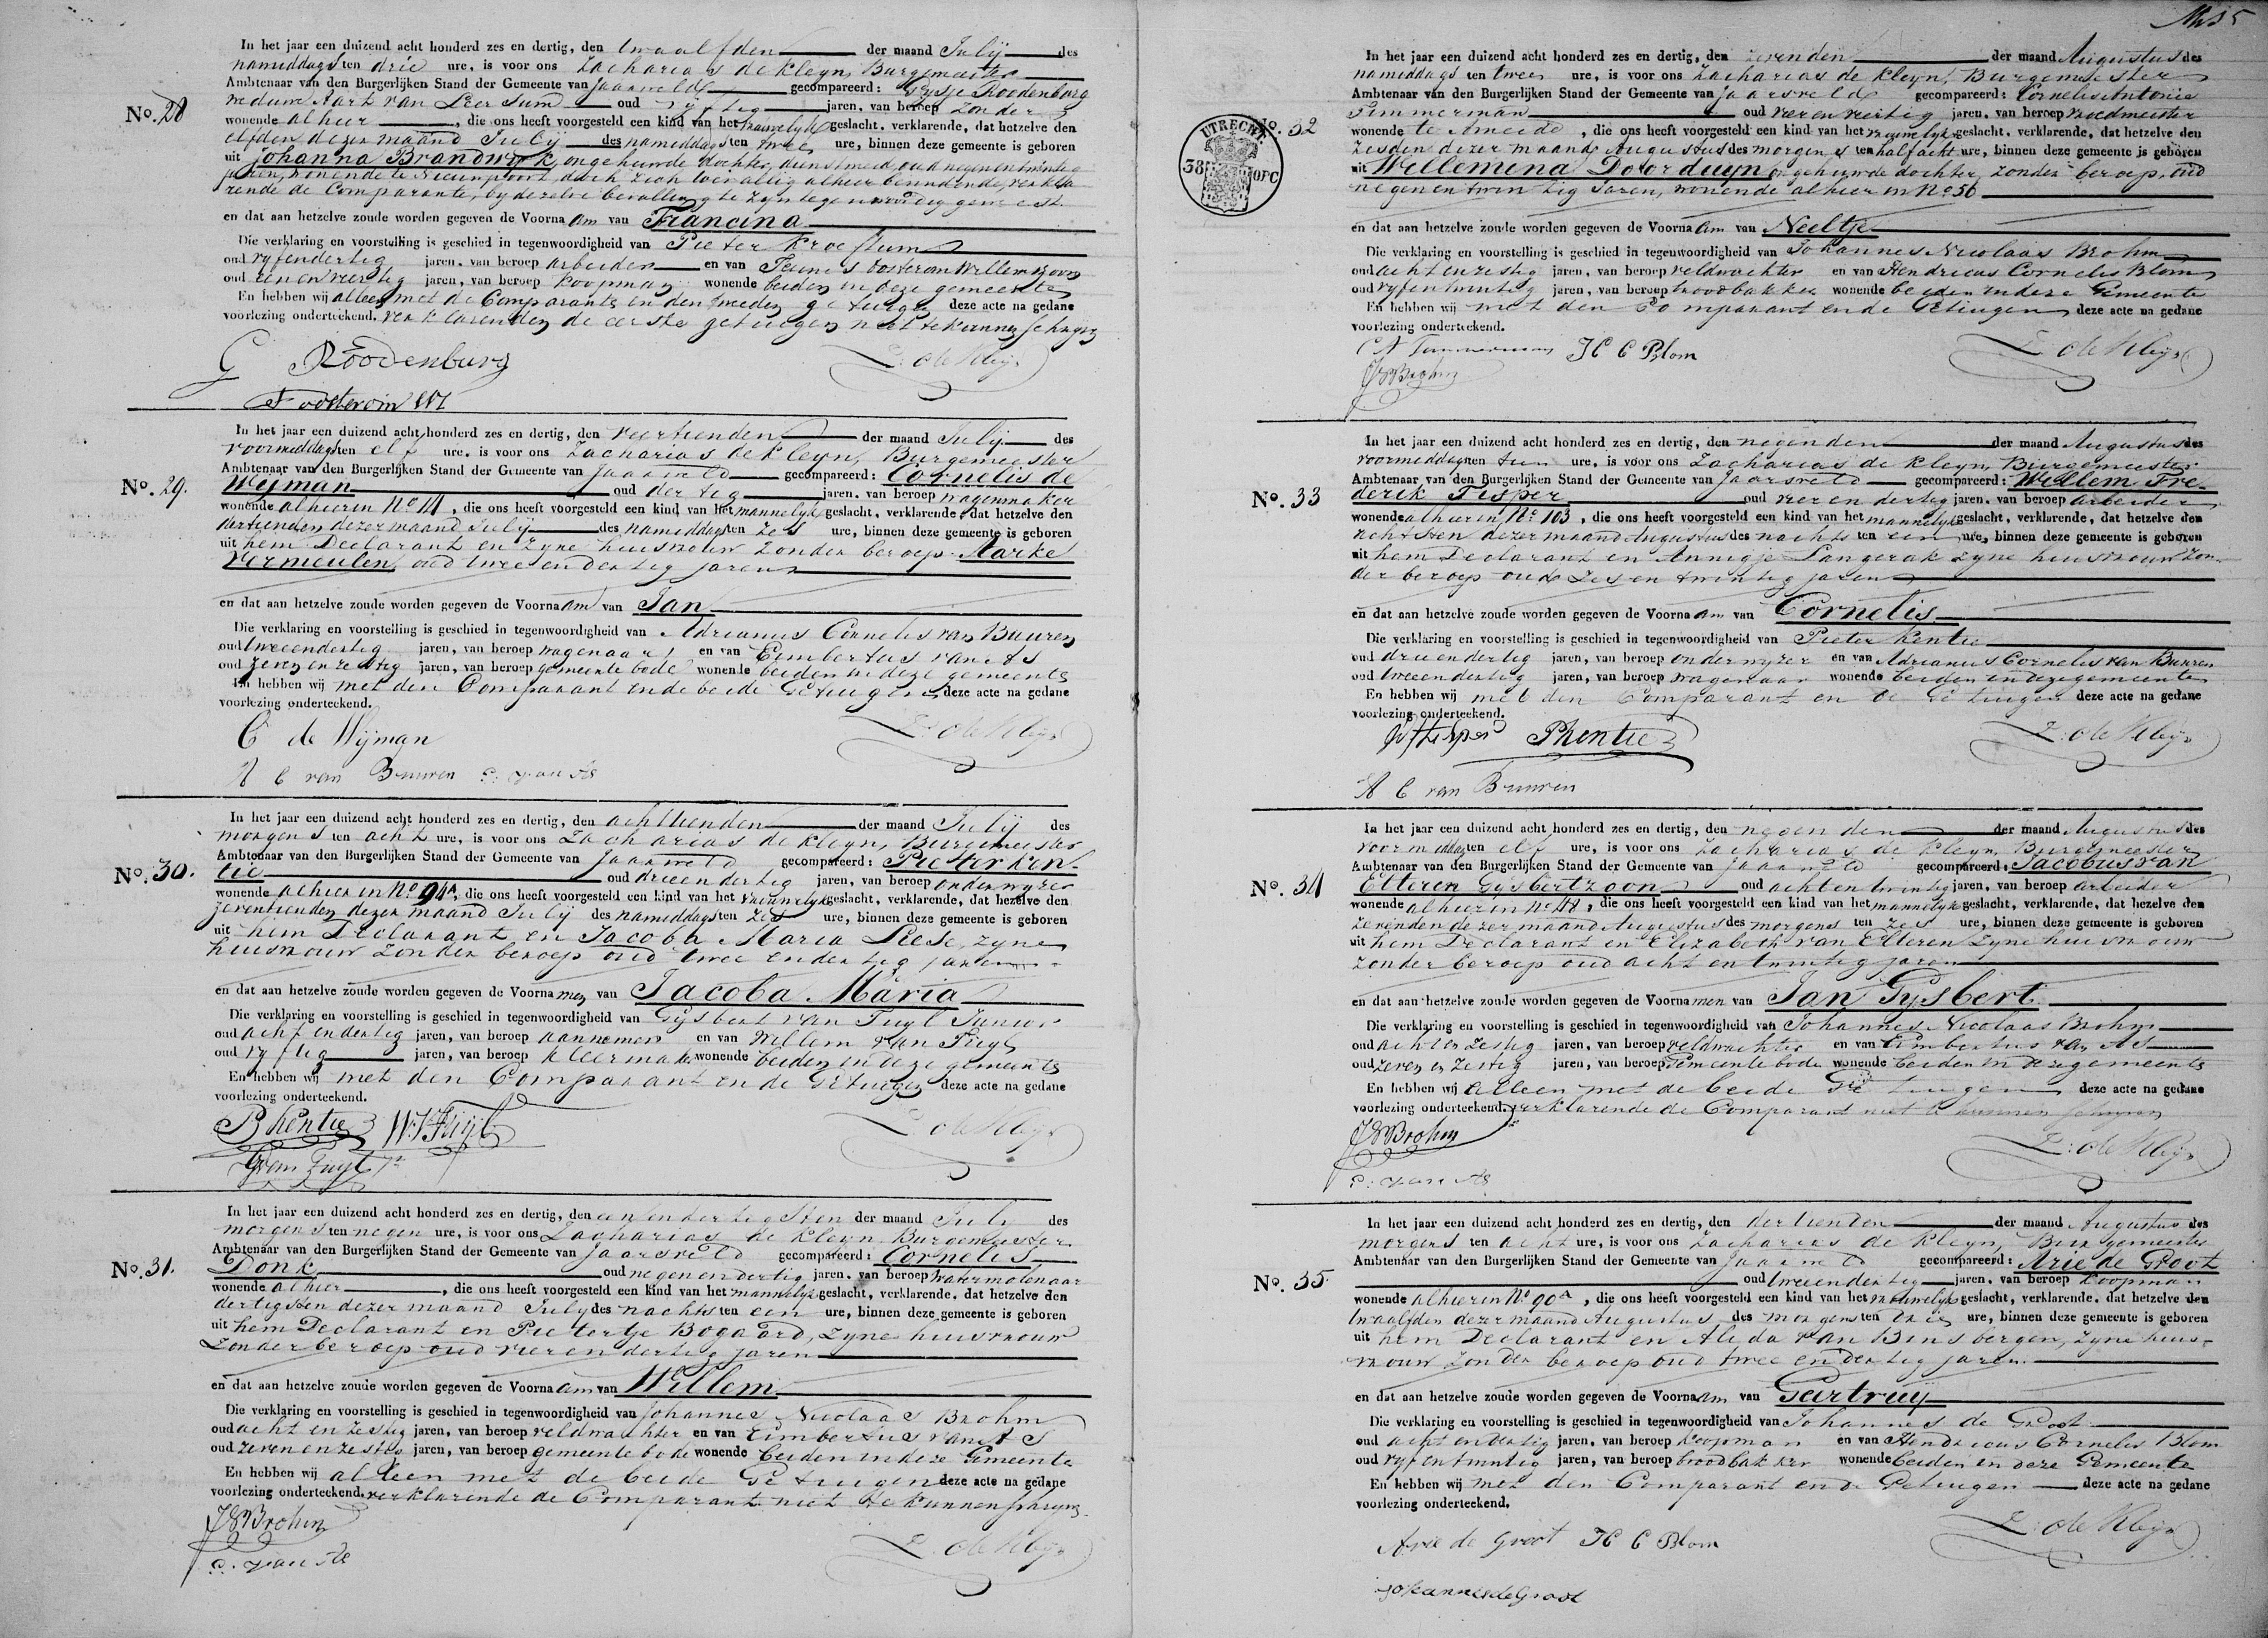 In het jaar een duizend acht honderd zes en dertig, den twaalfden der maand Julij des
namiddags ten drie ure, is voor ons Zacharias de Kleyn, Burgemeester
Ambtenaar van den Burgerlijken Stand der Gemeente van Jaarsveld gecompareerd: Roodenburg
No. 28
weduwe Aart van Leersum oud vyftig jaren, van beroep zonder
wonende alhier, die ons heeft voorgesteld een kind van het vrouwelyk geslacht, verklarende, dat hetzelve den
elfden dezer maand Julij des namiddags ten twee ure, binnen deze gemeente is geboren
uit Johanna Brandwyk, ongehuwde dochter, dienstmeid, oud negenentwintig
jaren, wonende te Nieuwpoort, doch zich toevallig alhier bevindende, verkla
rende de Comparante, by dezelve bevalling te zyn tegenwoordig geweest.
en dat aan hetzelve zoude worden gegeven de Voornaam van Francina
Die verklaring en voorstelling is geschied in tegenwoordigheid van Pieter
oud vyfendertig jaren, van beroep arbeider en van Teunis Oosterom Willemszoon
oud eenenveertig jaren, van beroep koopman wonende beiden in deze gemeente
En hebben wij alleen met de Comparante en den tweeden getuige deze acte na gedane
voorlezing onderteekend. verklarenden de eerste getuigen niet te kunnen schryven
G Roodenburg Z: de Kleijn
T oosterom WZ
In het jaar een duizend acht honderd zes en dertig, den veertienden der maand Julij des
voormiddags ten elf ure, is voor ons Zacharias de Kleyn, Burgemeester
Ambtenaar van den Burgerlijken Stand der Gemeente van Jaarsveld gecompareerd: Cornelis de
No. 29.
Wijman oud dertig jaren, van beroep wagenmaker
wonende alhier in No, die ons heeft voorgesteld een kind van het mannelyk geslacht, verklarende, dat hetzelve den
dertienden dezer maand Julij des namiddags ten zes ure, binnen deze gemeente is geboren
uit hem Declarant en zyne huisvrouw zonder beroep Marke
Vermeulen, oud twee en dertig jaren
en dat aan hetzelve zoude worden gegeven de Voornaam van Jan
Die verklaring en voorstelling is geschied in tegenwoordigheid van Adrianus Cornelis van Buuren
oud tweeendertig jaren, van beroep wagenaar en van Eimbertus van As
oud zeven en zestig jaren, van beroep gemeente bode wonende beiden in deze gemeente
En hebben wij met den Comparant en de beide Getuigen deze acte na gedane
voorlezing onderteekend.
C de Wijman Z: de Kleijn
A C van Buuren E: van As
In het jaar een duizend acht honderd zes en dertig, den achttienden der maand Julij des
morgens ten acht ure, is voor ons Zacharias de Kleyn, Burgemeester
Ambtenaar van den Burgerlijken Stand der Gemeente van Jaarsveld gecompareerd: Pieter Ken-
No. 30.
tie oud drieendertig jaren, van beroep onderwyzer
wonende alhier in No. 94A, die ons heeft voorgesteld een kind van het vrouwelyk geslacht, verklarende, dat hezelve den
zeventienden dezer maand Julij des namiddags ten zes ure, binnen deze gemeente is geboren
uit hem Declarant en Jacoba Maria Liese, zyne
huisvrouw zonder beroep oud twee endertig jaren
en dat aan hetzelve zoude worden gegeven de Voornamen van Jacoba Maria
Die verklaring en voorstelling is geschied in tegenwoordigheid van Gijsbert van Tuyl Junior
oud acht endertig jaren, van beroep aannemer en van Willem van Tuyl
oud vyftig jaren, van beroep kleermaker wonende beiden in deze gemeente
En hebben wij met den Comparant en de Getuigen deze acte na gedane
voorlezing onderteekend.
PKentie W V Tuijl Z de Kleijn
G van Tuyl Jr
In het jaar een duizend acht honderd zes en dertig, den eenendertigsten der maand Julij des
morgens ten negen ure, is voor ons Zacharias de Kleyn Burgemeester
Ambtenaar van den Burgerlijken Stand der Gemeente van Jaarsveld gecompareerd: Cornelis
No. 31.
Donk oud negenendertig jaren, van beroep watermolenaar
wonende alhier, die ons heeft voorgesteld een kind van het mannelyk geslacht, verklarende, dat hetzelve den
dertigsten dezer maand July des nachts ten een ure, binnen deze gemeente is geboren
uit hem Declarant en Pietertje Bogaard, zyne huisvrouw
zonder beroep oud vieren dertig jaren
en dat aan hetzelve zoude worden gegeven de Voornaam van Willem
Die verklaring en voorstelling is geschied in tegenwoordigheid van Johannes Nicolaas Brohm
oud acht en zestig jaren, van beroep veldwachter en van Eimbertus van As
oud zeven en zestig jaren, van beroep gemeente bode wonende beiden in deze Gemeente
En hebben wij alleen met de beide Getuigen deze acte na gedane
voorlezing onderteekend. verklarende de Comparant niet te kunnen schryven.
JNBrohm Z: de Kleijn
E: van As
UTRECHT
38
OPC
In het jaar een duizend acht honderd zes en dertig, den zevenden der maand Augustus des
namiddags ten twee ure, is voor ons Zacharias de Kleyn, Burgemeester
Ambtenaar van den Burgerlijken Stand der Gemeente van Jaarsveld gecompareerd: Cornelis Antonie
No. 32
Timmerman oud vierenveertig jaren, van beroep vroedmeester
wonende te Ameide, die ons heeft voorgesteld een kind van het vrouwelyk geslacht, verklarende, dat hetzelve den
zesden dezer maand Augustus des morgens ten half acht ure, binnen deze gemeente is geboren
uit Willemina Doorduyn ongehuwde dochter, zonder beroep, oud
negenentwintig Jaren, wonende alhier in No. 56
en dat aan hetzelve zoude worden gegeven de Voornaam van Neeltje
Die verklaring en voorstelling is geschied in tegenwoordigheid van Johannes Nicolaas Brohm
oud acht en zestig jaren, van beroep veldwachter en van Hendricus Cornelis Blom
oud vyfentwintig jaren, van beroep broodbakker wonende beiden in deze Gemeente
En hebben wij met den Comparant en de Getuigen deze acte na gedane
voorlezing onderteekend.
C A Timmerman H C Blom Z: de Kleijn
JNBrohm
In het jaar een duizend acht honderd zes en dertig, den negenden der maand Augustus des
voormiddags ten tien ure, is voor ons Zacharias de Kleyn, Burgemeester
Ambtenaar van den Burgerlijken Stand der Gemeente van Jaarsveld gecompareerd: Willem Fre-
No. 33
derik Fesper oud vier en dertig jaren, van beroep arbeider
wonende alhier in No. 103, die ons heeft voorgesteld een kind van het mannelyk geslacht, verklarende, dat hetzelve den
achtsten dezer maand Augustus des nachts ten een ure, binnen deze gemeente is geboren
uit hem Declarant en Annigje Langerak zyne huisvrouw zon-
der beroep oud zes en twintig jaren
en dat aan hetzelve zoude worden gegeven de Voornaam van Cornelis
Die verklaring en voorstelling is geschied in tegenwoordigheid van Pieter Kentie
oud drieendertig jaren, van beroep onderwyzer en van Adrianus Cornelis van Buuren
oud tweeendertig jaren, van beroep wagenaar wonende beiden in deze gemeente
En hebben wij met den Comparant en de Getuigen deze acte na gedane
voorlezing onderteekend.
PKentie Z: de Kleijn
A C van Buuren
In het jaar een duizend acht honderd zes en dertig, den negenden der maand Augustus des
voormiddags ten elf ure, is voor ons Zacharias de Kleyn, Burgemeester
Ambtenaar van den Burgerlijken Stand der Gemeente van Jaarsveld gecompareerd: Jacobus van
No. 34
Elteren Gysbertzoon oud acht en twintig jaren, van beroep arbeider
wonende alhier in No. 48, die ons heeft voorgesteld een kind van het mannelyk geslacht, verklarende, dat hezelve den
zevenden dezer maand Augustus des morgens ten zes ure, binnen deze gemeente is geboren
uit hem Declarant en Elizabeth van Elteren zyne huisvrouw
zonder beroep oud acht en twintig jaren
en dat aan hetzelve zoude worden gegeven de Voornamen van Jan Gysbert
Die verklaring en voorstelling is geschied in tegenwoordigheid van Johannes Nicolaas Brohm
oud acht en zestig jaren, van beroep veldwachter en van Eimbertus van As
oud zeven en zestig jaren, van beroep Gemeente bode wonende beiden in deze gemeente
En hebben wij alleen met de beide Getuigen deze acte na gedane
voorlezing onderteekend. verklarende de Comparant niet te kunnen schryven
JNBrohm Z: de Kleijn
E: van As
In het jaar een duizend acht honderd zes en dertig, den dertienden der maand Augustus des
morgens ten acht ure, is voor ons Zacharias de Kleyn, Burgemeester
Ambtenaar van den Burgerlijken Stand der Gemeente van Jaarsveld gecompareerd: Arie de Groot
No. 35.
oud tweeendertig jaren, van beroep koopman
wonende alhier in No. 90a, die ons heeft voorgesteld een kind van het vrouwelyk geslacht, verklarende, dat hetzelve den
twaalfden dezer maand Augustus des morgens ten drie ure, binnen deze gemeente is geboren
uit hem Declarant en Alida van Binsbergen, zyne huis-
vrouw zonder beroep oud twee en dertig jaren.
en dat aan hetzelve zoude worden gegeven de Voornaam van Geertruij
Die verklaring en voorstelling is geschied in tegenwoordigheid van Johannes de Groot
oud acht endertig jaren, van beroep koopman en van Hendricus Cornelis Blom
oud vyf entwintig jaren, van beroep broodbakker wonende beiden in deze Gemeente
En hebben wij met den Comparant en de Getuigen deze acte na gedane
voorlezing onderteekend.
Arie de Groot H C Blom Z: de Kleijn
Johannes de Groot